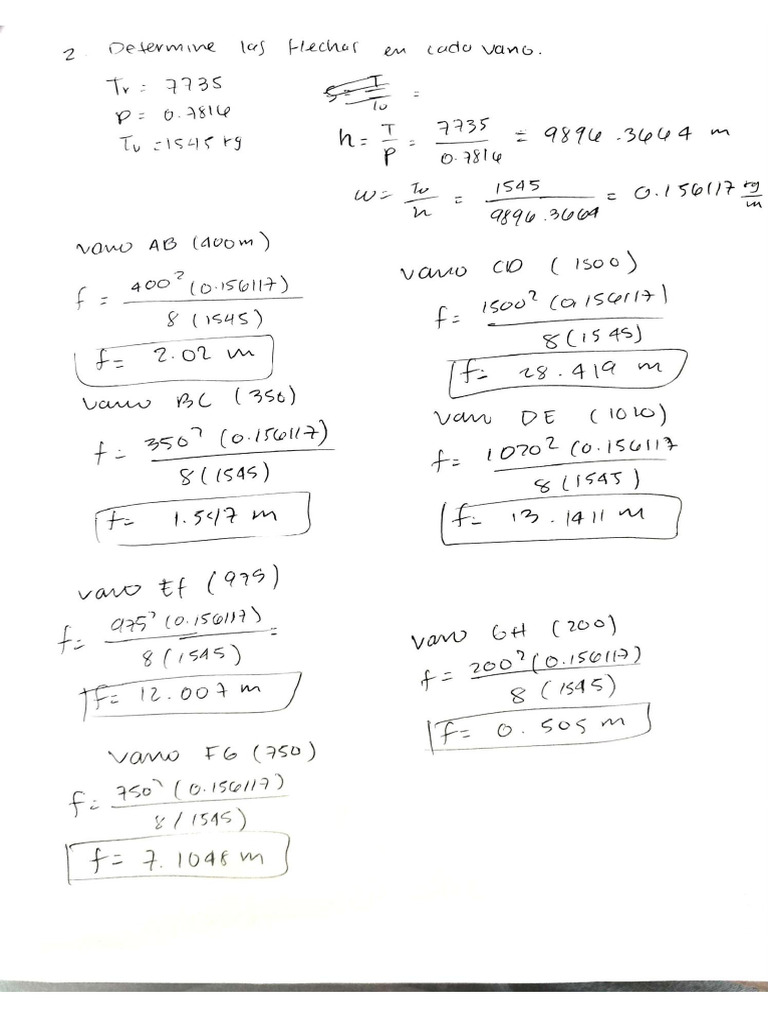 2. Determine las flechas en cada vano.
Tr = 7735
P = 0.7816
Tv = 1545 kg
h = T/P = 7735/0.7816 = 9896.3664 m
w = Tv/h = 1545/9896.3664 = 0.156117 kg/m
vano AB (400m)
f = 400² (0.156117)
8 (1545)
f = 2.02 m
vano BC (350)
f = 350² (0.156117)
8 (1545)
f = 1.547 m
vano CD (1500)
f = 1500² (0.156117)
8 (1545)
f = 28.419 m
van DE (1020)
f = 1020² (0.156117
8 (1545)
f = 13.1411 m
vano Ef (975)
f = 975² (0.156117) =
8 (1545)
f = 12.007 m
vano FG (750)
f = 750² (0.156117)
8 (1545)
f = 7.1048 m
vano GH (200)
f = 200² (0.156117)
8 (1545)
f = 0.505 m